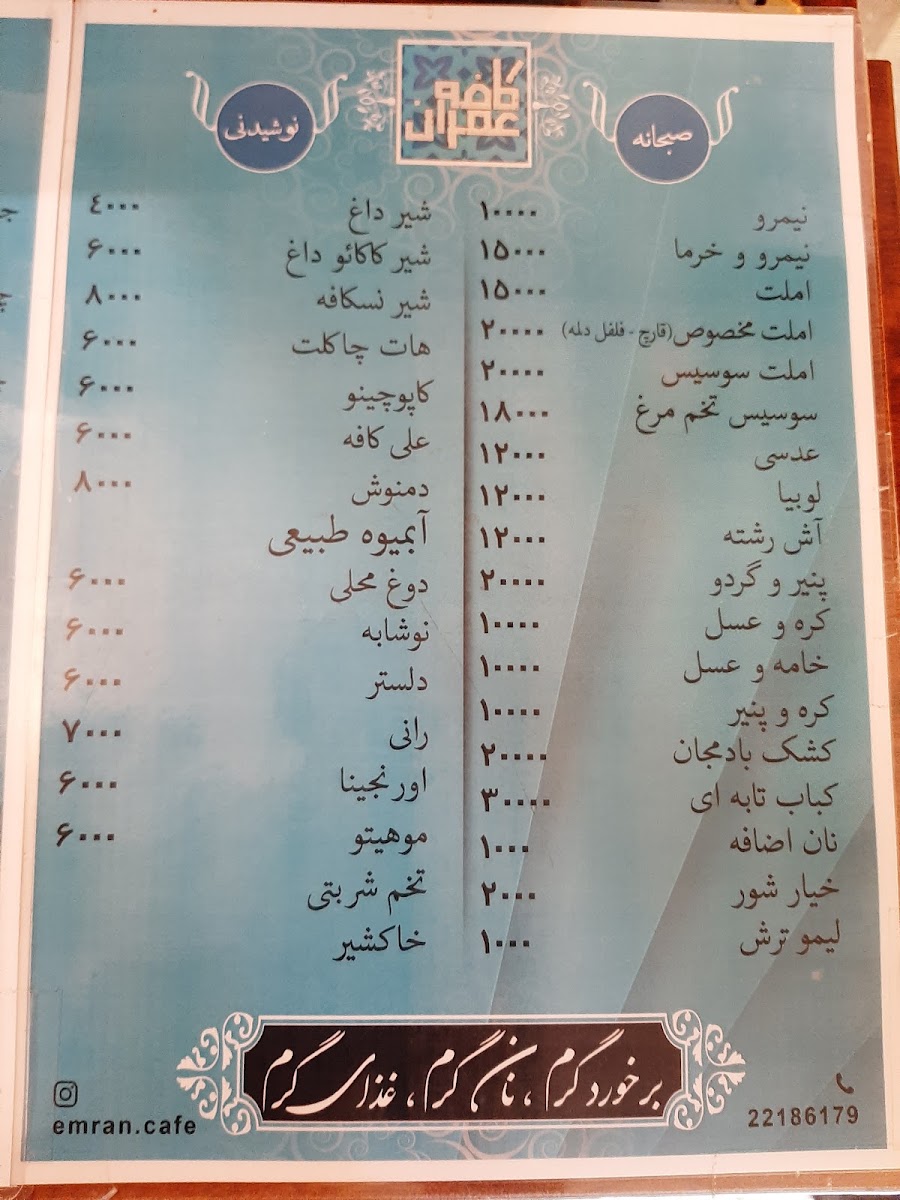 کافه عمران
صبحانه
نیمرو ۱۰۰۰۰
نیمرو و خرما ۱۵۰۰۰
املت ۱۵۰۰۰
املت مخصوص (قارچ - فلفل دلمه) ۲۰۰۰۰
املت سوسیس ۲۰۰۰۰
سوسیس تخم مرغ ۱۸۰۰۰
عدسی ۱۲۰۰۰
لوبیا ۱۲۰۰۰
آش رشته ۱۲۰۰۰
پنیر و گردو ۲۰۰۰۰
کره و عسل ۱۰۰۰۰
خامه و عسل ۱۰۰۰۰
کره و پنیر ۱۰۰۰۰
کشک بادمجان ۲۰۰۰۰
کباب تابه ای ۳۰۰۰۰
نان اضافه ۱۰۰۰
خیار شور ۲۰۰۰
لیمو ترش ۱۰۰۰
نوشیدنی
شیر داغ ٤۰۰۰
شیر کاکائو داغ ۶۰۰۰
شیر نسکافه ۸۰۰۰
هات چاکلت ۶۰۰۰
کاپوچینو ۶۰۰۰
علی کافه ۶۰۰۰
دمنوش ۸۰۰۰
آبمیوه طبیعی
دوغ محلی ۶۰۰۰
نوشابه ۶۰۰۰
دلستر ۶۰۰۰
رانی ۷۰۰۰
اورنجینا ۶۰۰۰
موهیتو ۶۰۰۰
تخم شربتی
خاکشیر
برخورد گرم ، نان گرم ، غذای گرم
22186179
emran.cafe